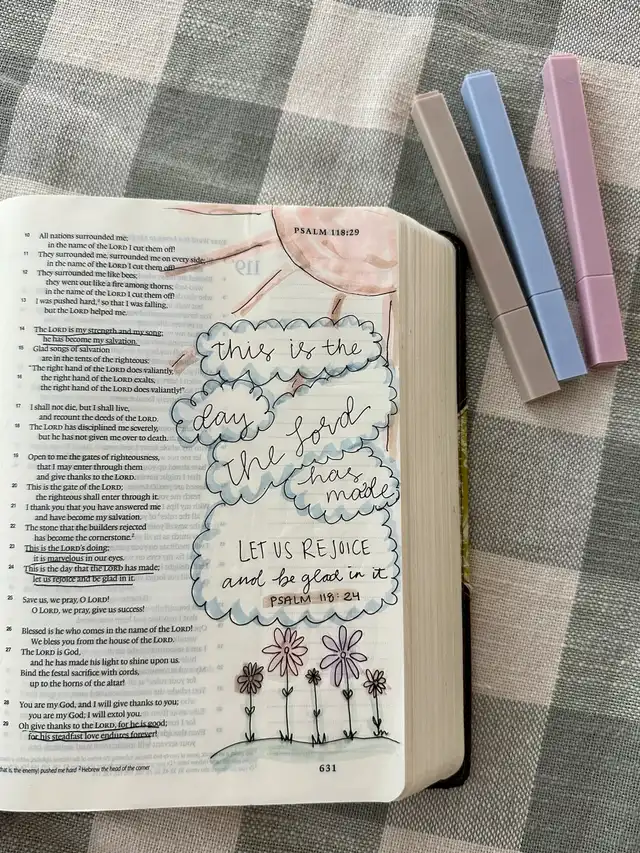 PSALM 118:29
10 All nations surrounded me;
in the name of the LORD I cut them off!
11 They surrounded me, surrounded me on every side;
in the name of the LORD I cut them off!
12 They surrounded me like bees;
they went out like a fire among thorns;
in the name of the LORD I cut them off!
13 I was pushed hard,¹ so that I was falling,
but the LORD helped me.
14 The LORD is my strength and my song;
he has become my salvation.
15 Glad songs of salvation
are in the tents of the righteous:
"The right hand of the LORD does valiantly,
16 the right hand of the LORD exalts,
the right hand of the LORD does valiantly!"
17 I shall not die, but I shall live,
and recount the deeds of the LORD.
18 The LORD has disciplined me severely,
but he has not given me over to death.
19 Open to me the gates of righteousness,
that I may enter through them
and give thanks to the LORD.
20 This is the gate of the LORD;
the righteous shall enter through it.
21 I thank you that you have answered me
and have become my salvation.
22 The stone that the builders rejected
has become the cornerstone.²
23 This is the LORD's doing;
it is marvelous in our eyes.
24 This is the day that the LORD has made;
let us rejoice and be glad in it.
25 Save us, we pray, O LORD!
O LORD, we pray, give us success!
26 Blessed is he who comes in the name of the LORD!
We bless you from the house of the LORD.
27 The LORD is God,
and he has made his light to shine upon us.
Bind the festal sacrifice with cords,
up to the horns of the altar!
28 You are my God, and I will give thanks to you;
you are my God; I will extol you.
29 Oh give thanks to the LORD, for he is good;
for his steadfast love endures forever!
that is, the enemy) pushed me hard ² Hebrew the head of the corner
this is the
day
the Lord
has
made
LET US REJOICE
and be glad in it
PSALM 118:24
631